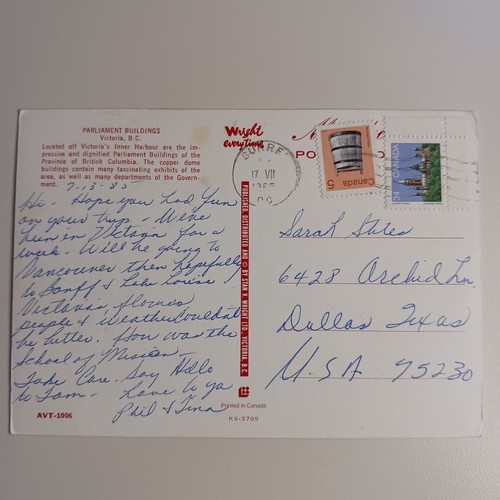 PARLIAMENT BUILDINGS
Victoria, B.C.
Located off Victoria's Inner Harbour are the im-
pressive and dignified Parliament Buildings of the
Province of British Columbia. The copper dome
buildings contain many fascinating exhibits of the
area, as well as many departments of the Govern-
ment.
7-13-85
Hi - Hope you had fun
on your trip - We've
been in Victoria for a
week. Will be going to
Vancouver then hopefully
to Banff & Lake Louise.
Victoria, flowers
people & weather couldn't
be better. How was the
School of Mission
Take Care. Say Hello
to Fam - Love to ya
Phil & Tina
AVT-1006
Wright
everytime
PUBLISHED, DISTRIBUTED AND © BY STAN V. WRIGHT LTD., VICTORIA, B.C.
Printed in Canada
KS-3795
PO
SURRE
17 VII
1985
BC
Canada
5
34 CANADA
Sarah Stiles
6428 Orchid Ln.
Dallas Texas
U.S.A 75230